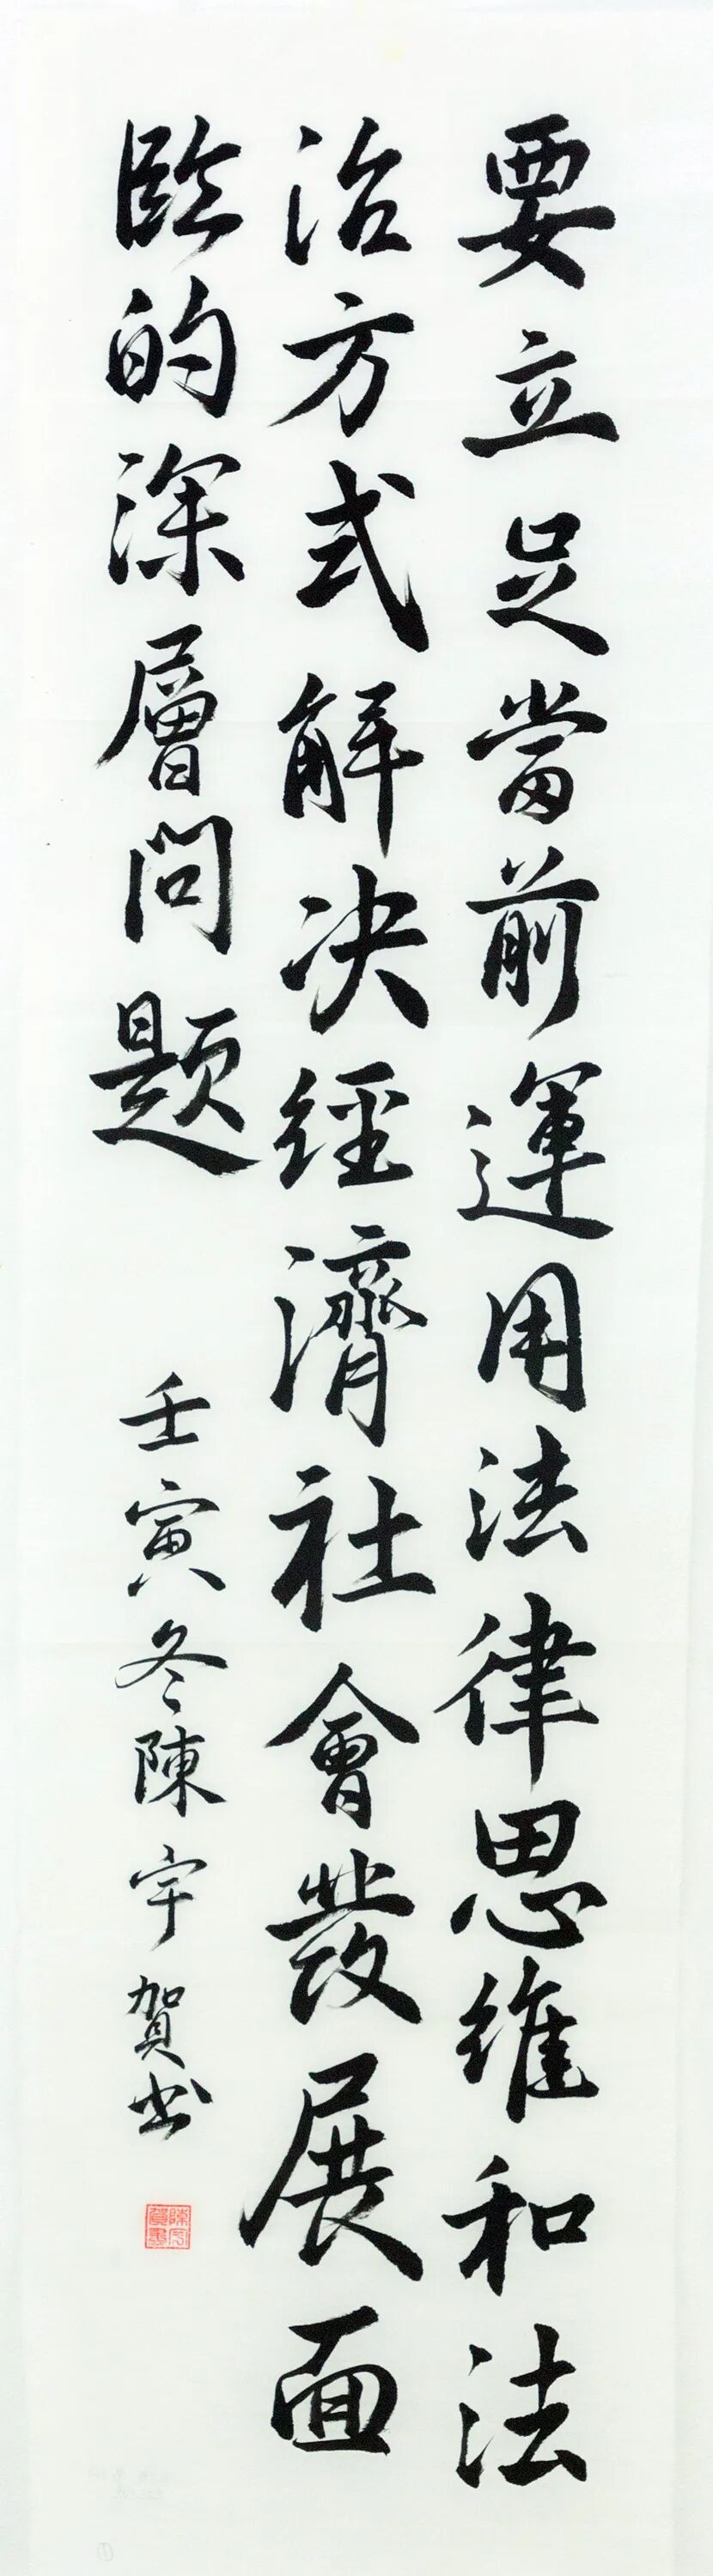 要立足當前運用法律思維和法
治方式解决經濟社會發展面
臨的深層問題
壬寅冬陳宇賀书